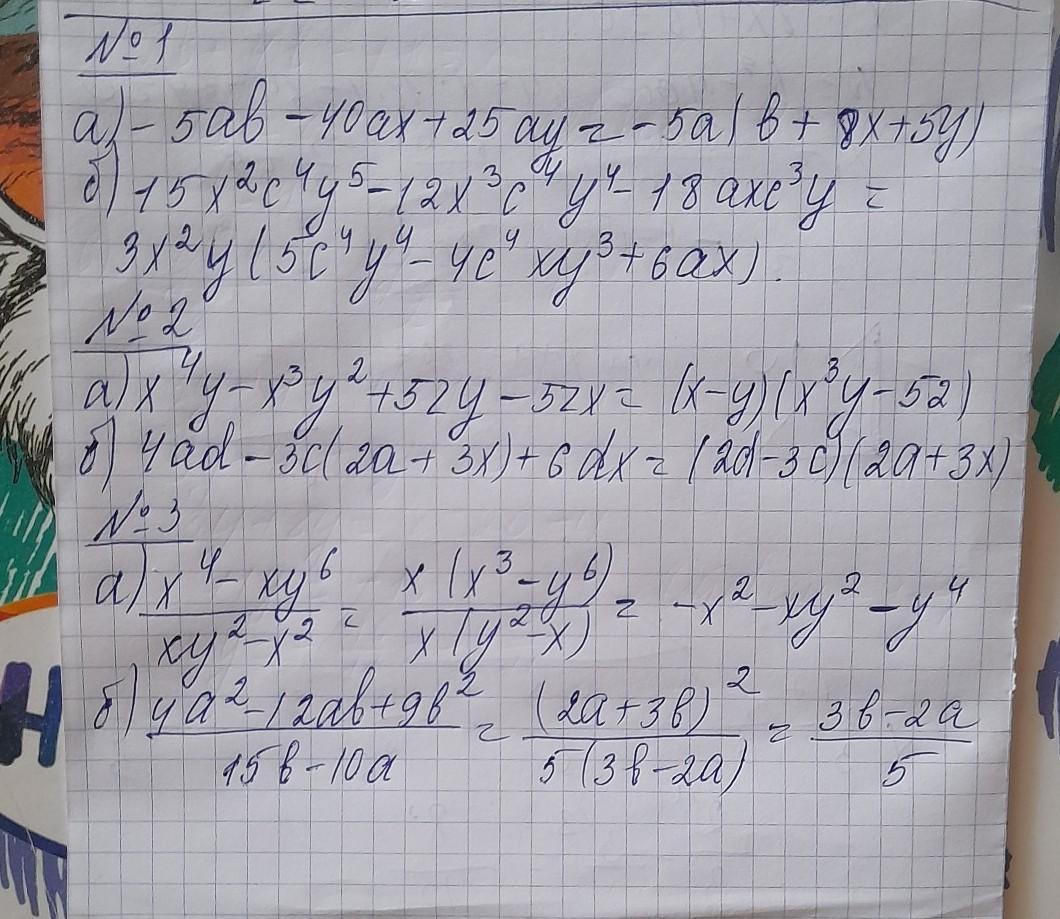 №1
а) - 5ab - 40ax + 25ay = - 5a(b + 8x + 5y)
б) 15x²c⁴y⁵ - 12x³c⁴y⁴ - 18axc³y =
3x²y(5c⁴y⁴ - 4c⁴xy³ + 6ax).
№2
а) x⁴y - x³y² + 5zy - 5zx = (x-y)(x³y - 5z)
б) 4ad - 3c(2a + 3x) + 6dx = (2d - 3c)(2a + 3x)
№3
а) (x⁴ - xy⁶)/(xy² - x²) = x(x³ - y⁶)/x(y² - x) = -x² - xy² - y⁴
б) (4a² - 12ab + 9b²)/(15b - 10a) = (2a + 3b)²/5(3b - 2a) = (3b - 2a)/5
Н